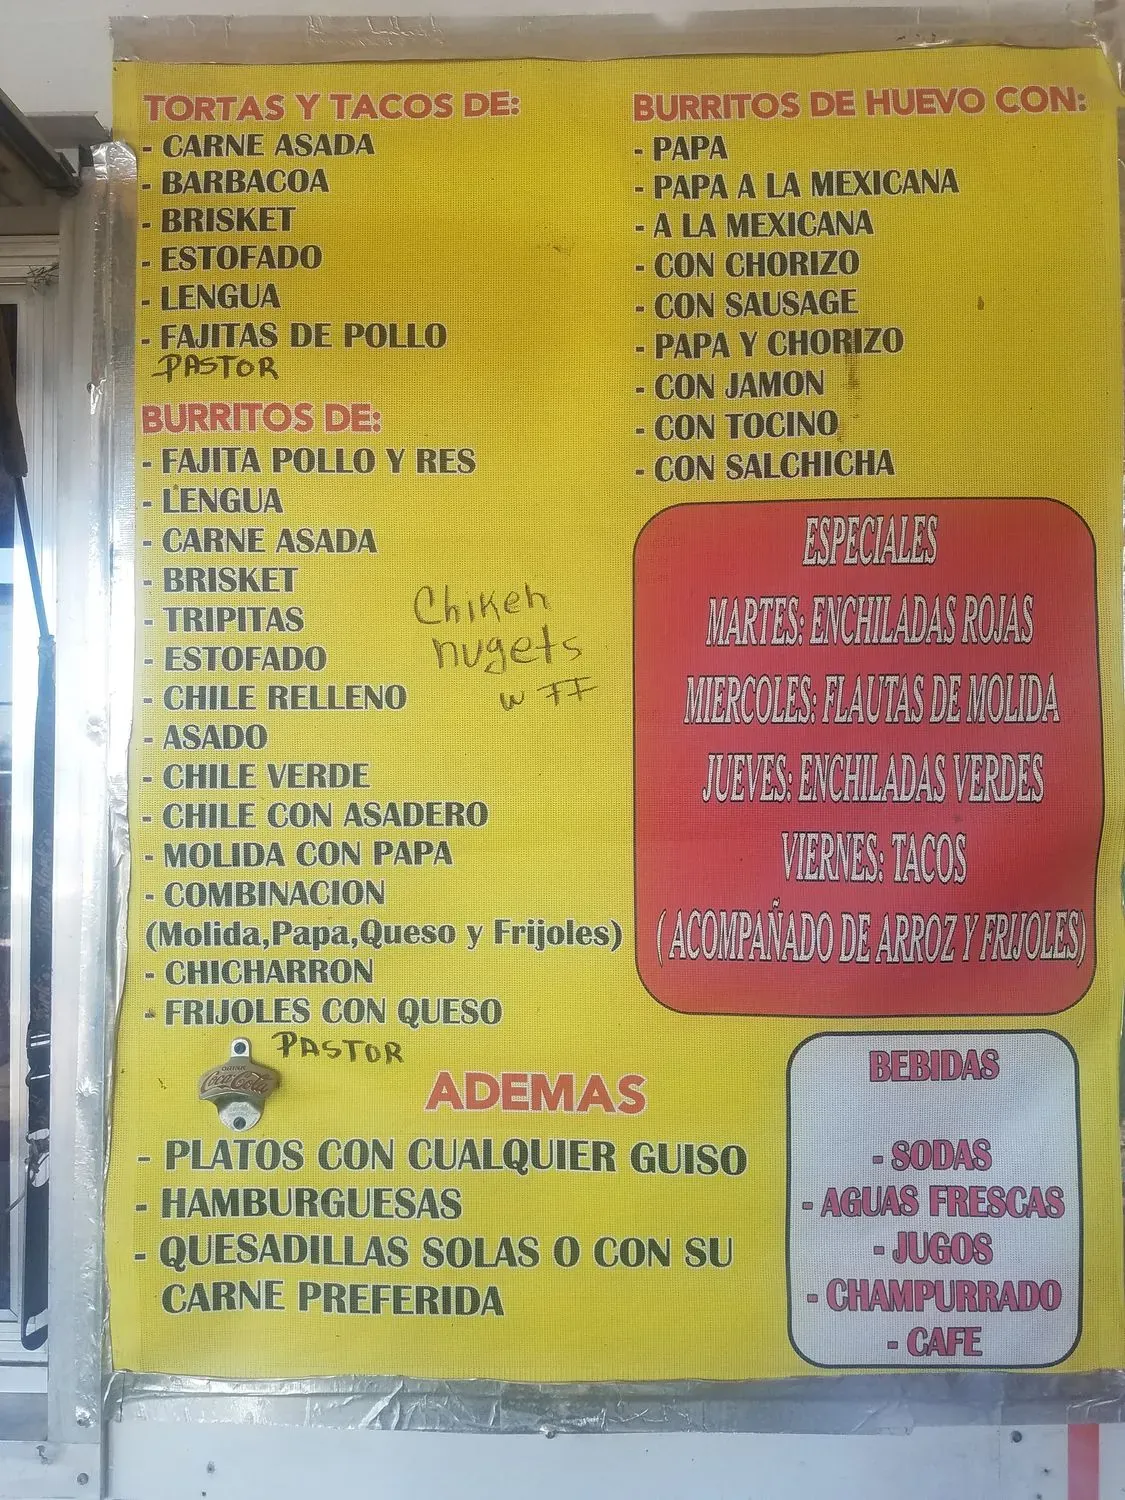 TORTAS Y TACOS DE:
- CARNE ASADA
- BARBACOA
- BRISKET
- ESTOFADO
- LENGUA
- FAJITAS DE POLLO
PASTOR
BURRITOS DE:
- FAJITA POLLO Y RES
- LENGUA
- CARNE ASADA
- BRISKET
- TRIPITAS
- ESTOFADO
- CHILE RELLENO
- ASADO
- CHILE VERDE
- CHILE CON ASADERO
- MOLIDA CON PAPA
- COMBINACION
(Molida,Papa,Queso y Frijoles)
- CHICHARRON
- FRIJOLES CON QUESO
PASTOR
Chiken
nugets
w FF
BURRITOS DE HUEVO CON:
- PAPA
- PAPA A LA MEXICANA
- A LA MEXICANA
- CON CHORIZO
- CON SAUSAGE
- PAPA Y CHORIZO
- CON JAMON
- CON TOCINO
- CON SALCHICHA
ESPECIALES
MARTES: ENCHILADAS ROJAS
MIERCOLES: FLAUTAS DE MOLIDA
JUEVES: ENCHILADAS VERDES
VIERNES: TACOS
( ACOMPAÑADO DE ARROZ Y FRIJOLES)
Coca-Cola
ADEMAS
- PLATOS CON CUALQUIER GUISO
- HAMBURGUESAS
- QUESADILLAS SOLAS O CON SU
CARNE PREFERIDA
BEBIDAS
- SODAS
- AGUAS FRESCAS
- JUGOS
- CHAMPURRADO
- CAFE